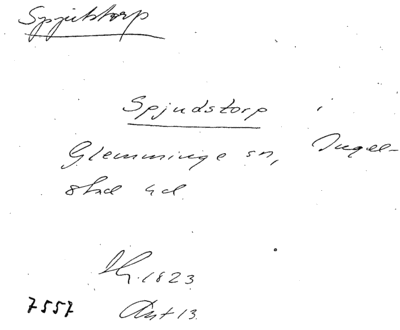 Spjutstorp
Spjudstorp
Glemminge sn, Ingel-
stad hd
1823
7557 Avt 13.